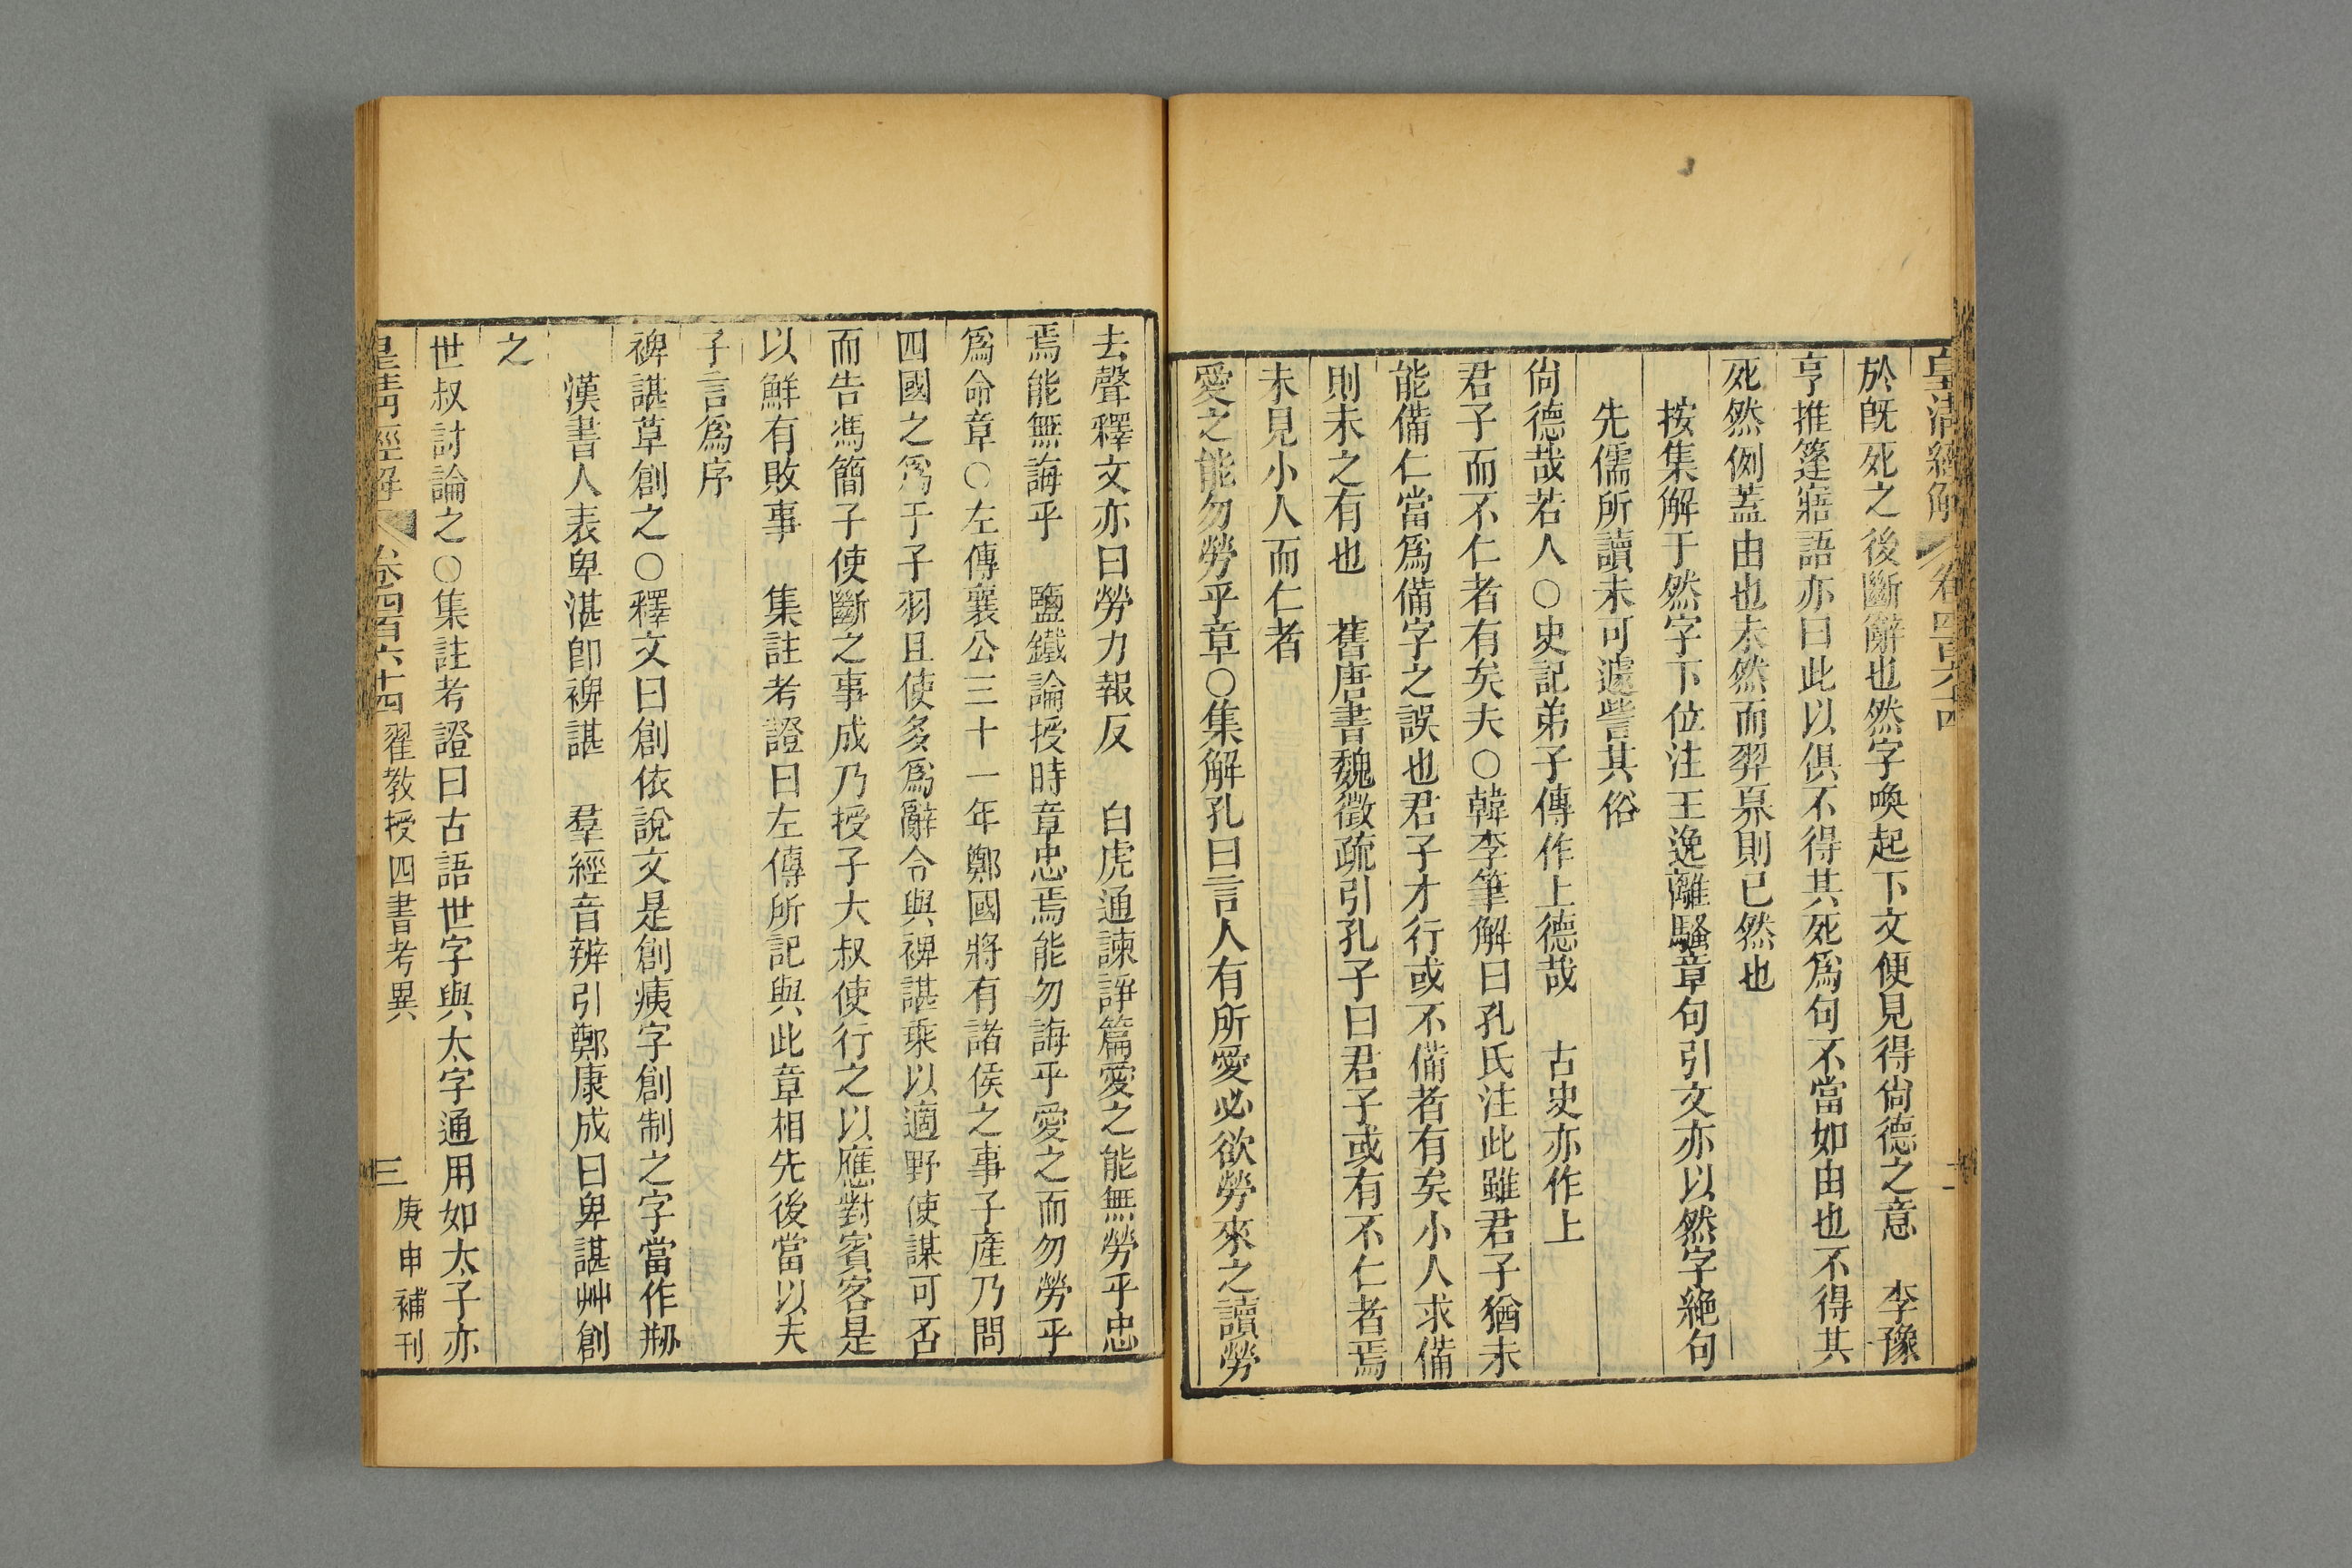 皇清經解 卷四百六十四 二
於旣死之後斷辭也然字喚起下文便見得尙德之意　李豫
亨推篷寤語亦曰此以俱不得其死爲句不當如由也不得其
死然例蓋由也未然而羿奡則已然也
按集解于然字下位注王逸離騷章句引文亦以然字絶句
先儒所讀未可遽訾其俗
尙德哉若人○史記弟子傳作上德哉　古史亦作上
君子而不仁者有矣夫○韓李筆解曰孔氏注此雖君子猶未
能備仁當爲備字之誤也君子才行或不備者有矣小人求備
則未之有也　舊唐書魏徵疏引孔子曰君子或有不仁者焉
未見小人而仁者
愛之能勿勞乎章○集解孔曰言人有所愛必欲勞來之讀勞
去聲釋文亦曰勞力報反　白虎通諫諍篇愛之能無勞乎忠
焉能無誨乎　鹽鐵論授時章忠焉能勿誨乎愛之而勿勞乎
爲命章○左傳襄公三十一年鄭國將有諸侯之事子產乃問
四國之爲于子羽且使多爲辭令與裨諶乘以適野使謀可否
而告馮簡子使斷之事成乃授子大叔使行之以應對賓客是
以鮮有敗事　集註考證曰左傳所記與此章相先後當以夫
子言爲序
裨諶草創之○釋文曰創依說文是創痍字創制之字當作刱
漢書人表卑湛卽裨諶　羣經音辨引鄭康成曰卑諶艸創
之
世叔討論之○集註考證曰古語世字與太字通用如太子亦
皇清經解 卷四百六十四 翟教授四書考異 三 庚申補刊